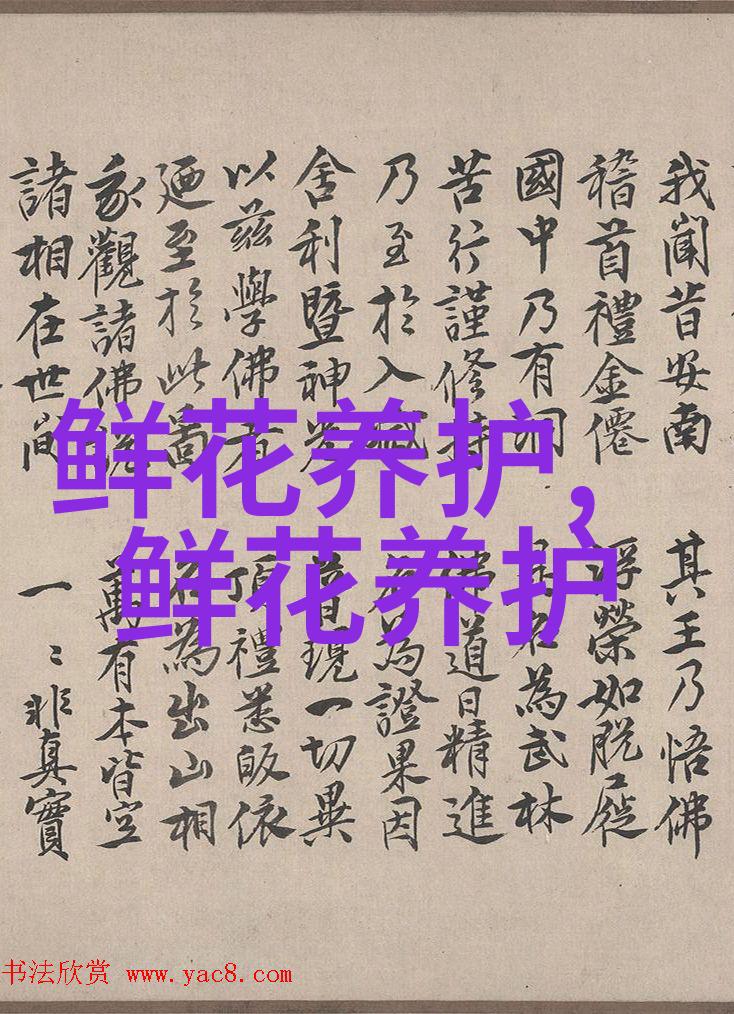 我聞昔安南 其王乃悟佛
稽首禮金僊 浮榮如脫屣
國中乃有洞 名為武林
苦行謹修持 佛道日精進
乃至於入滅 為證果因
舍利暨神光 普現一切異
以茲學佛者 頂禮悉皈依
廼至於此啚 名為出山相
我觀諸佛 萬有本皆空
諸相在世間 一〻非真實
鲜花养护,
鲜花养护
书法欣赏 www.yac8.com